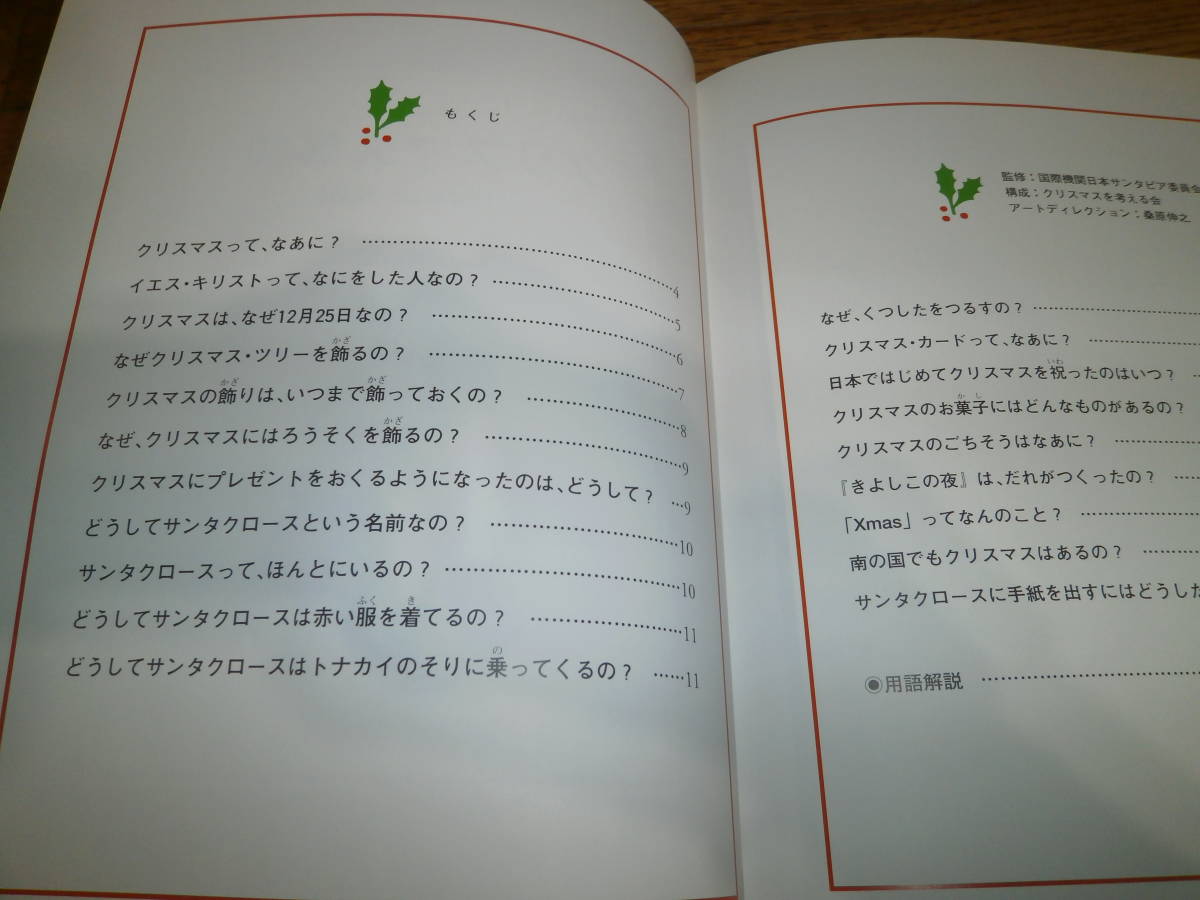 もくじ
クリスマスって、なあに？ ……………………………………4
イエス・キリストって、なにをした人なの？ ……………………5
クリスマスは、なぜ12月25日なの？ ……………………………6
なぜクリスマス・ツリーを飾るの？ ……………………………7
クリスマスの飾りは、いつまで飾っておくの？ …………………8
なぜ、クリスマスにはろうそくを飾るの？ ………………………9
クリスマスにプレゼントをおくるようになったのは、どうして？ …9
どうしてサンタクロースという名前なの？ ………………………10
サンタクロースって、ほんとにいるの？ …………………………10
どうしてサンタクロースは赤い服を着てるの？ …………………11
どうしてサンタクロースはトナカイのそりに乗ってくるの？ ……11
監修：国際機関日本サンタピア委員会
構成：クリスマスを考える会
アートディレクション：桑原伸之
なぜ、くつしたをつるすの？ ……………………
クリスマス・カードって、なあに？ ……………
日本ではじめてクリスマスを祝ったのはいつ？ …
クリスマスのお菓子にはどんなものがあるの？
クリスマスのごちそうはなあに？ ………………
『きよしこの夜』は、だれがつくったの？ ……
「Xmas」ってなんのこと？ ………………………
南の国でもクリスマスはあるの？ ………………
サンタクロースに手紙を出すにはどうした
◉用語解説 ……………………………